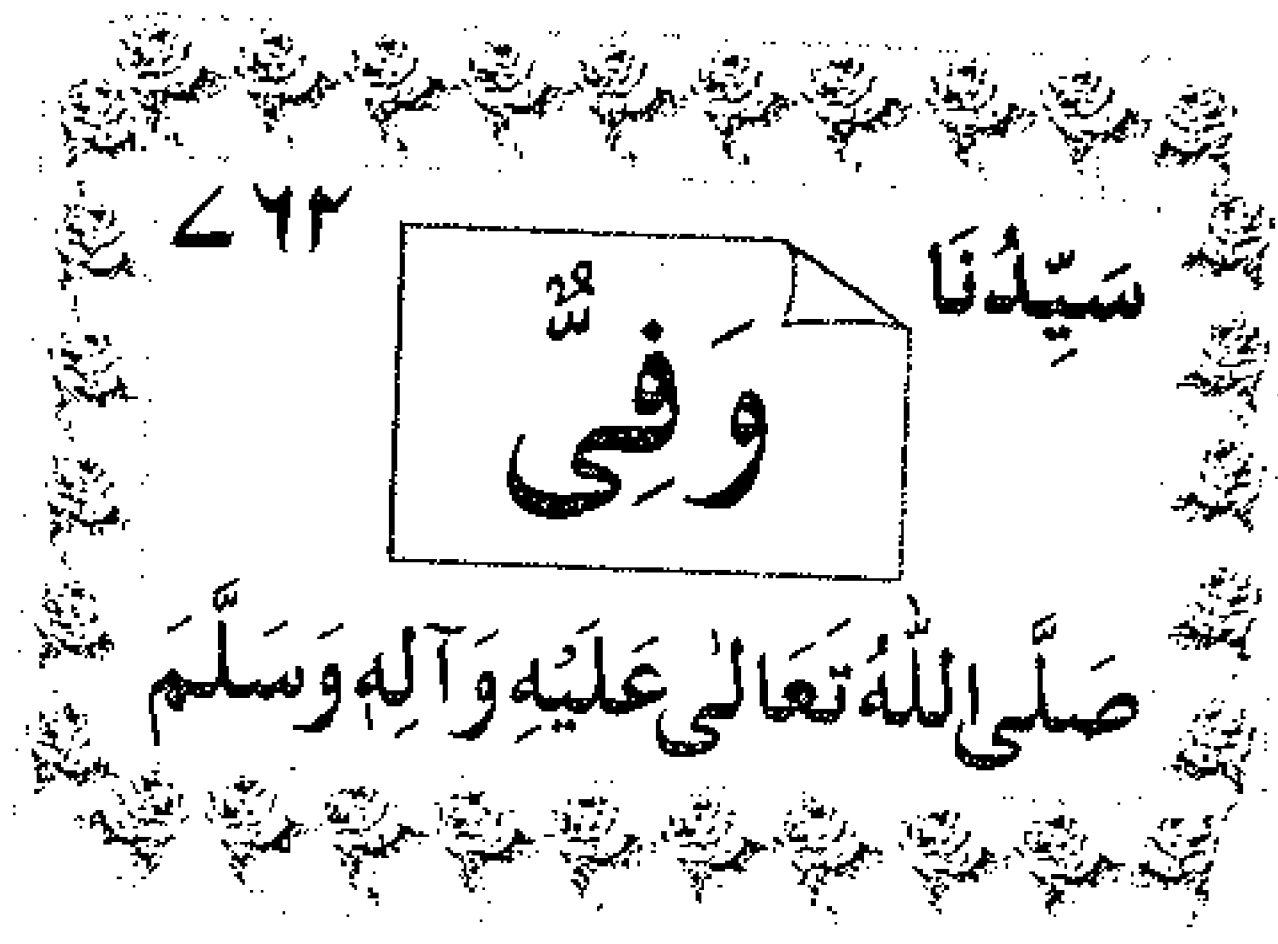 سَيِّدُنَا ۷۶۲
وَفِيٌّ
صَلَّى اللّٰهُ تَعَالٰى عَلَيْهِ وَآلِهٖ وَسَلَّمَ